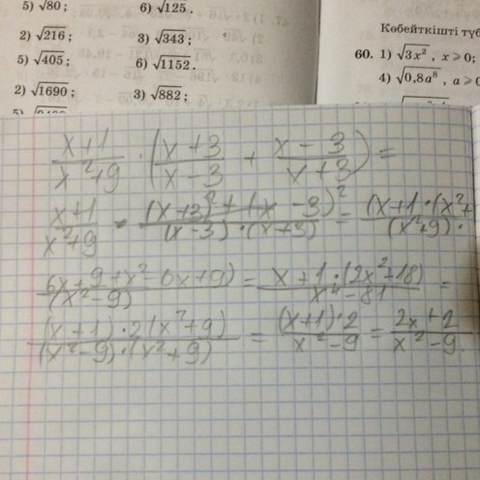 5) √80; 6) √125.
2) √216; 3) √343;
5) √405; 6) √1152.
2) √1690; 3) √882;
Көбейткішті түб
60. 1) √3x², x ⩾ 0;
4) √0,8a⁸, a ⩾
(x+1)/(x²+9) · ((x+3)/(x-3) + (x-3)/(x+3)) =
(x+1)/(x²+9) · ((x+3)²+(x-3)²)/((x-3)·(x+3)) = (x+1·(x²+ / (x²+9)·
6x+9+x²-6x+9)/(x²-9) = x+1·(2x²+18)/x⁴-81 =
(x+1)·2(x²+9)/(x²-9)·(x²+9) = (x+1)·2/x²-9 = 2x+2/x²-9